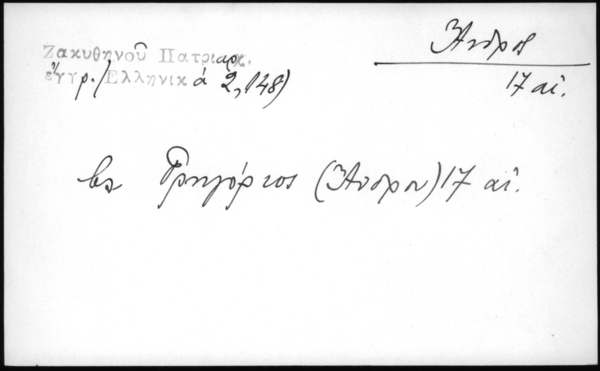 Ζακυθηνοῦ Πατριαρ.
ἔγγρ. / Ἑλληνικά 2, 148)
Ἄνδρος
17 αἰ.
Γρηγόριος (Ἄνδρου) 17 αἰ.